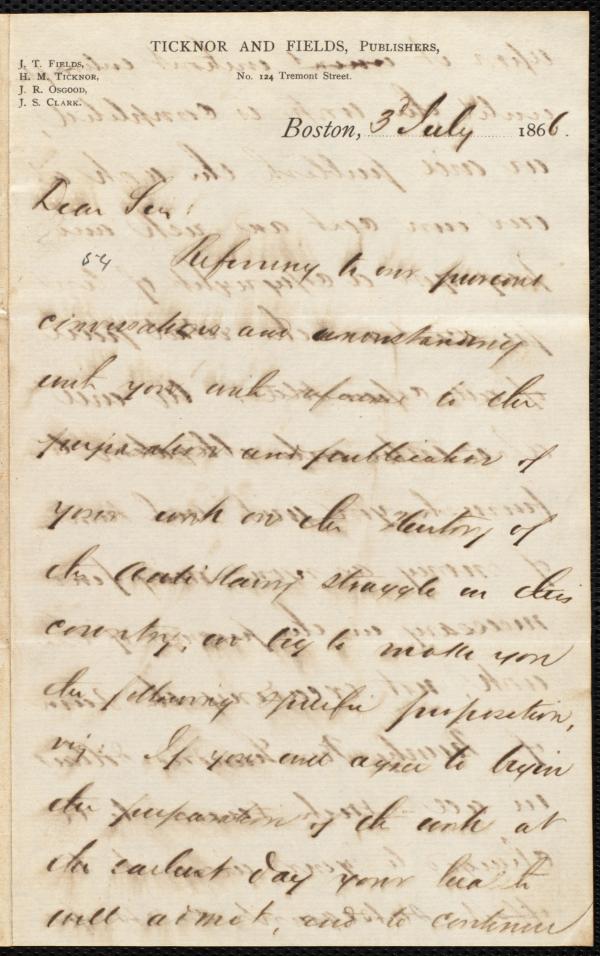 TICKNOR AND FIELDS, PUBLISHERS,
J. T. FIELDS,
H. M. TICKNOR,
J. R. OSGOOD,
J. S. CLARK.
No. 124 Tremont Street.
Boston, 3d July 1866.
Dear Sir,
54 Referring to our previous
conversations and understanding
with you with reference to the
preparation and publication of
your work on the History of
the Anti Slavery struggle in this
country, we beg to make you
the following specific proposition,
viz. If you will agree to begin
the preparation of the work at
the earliest day your health
will admit, and to continue